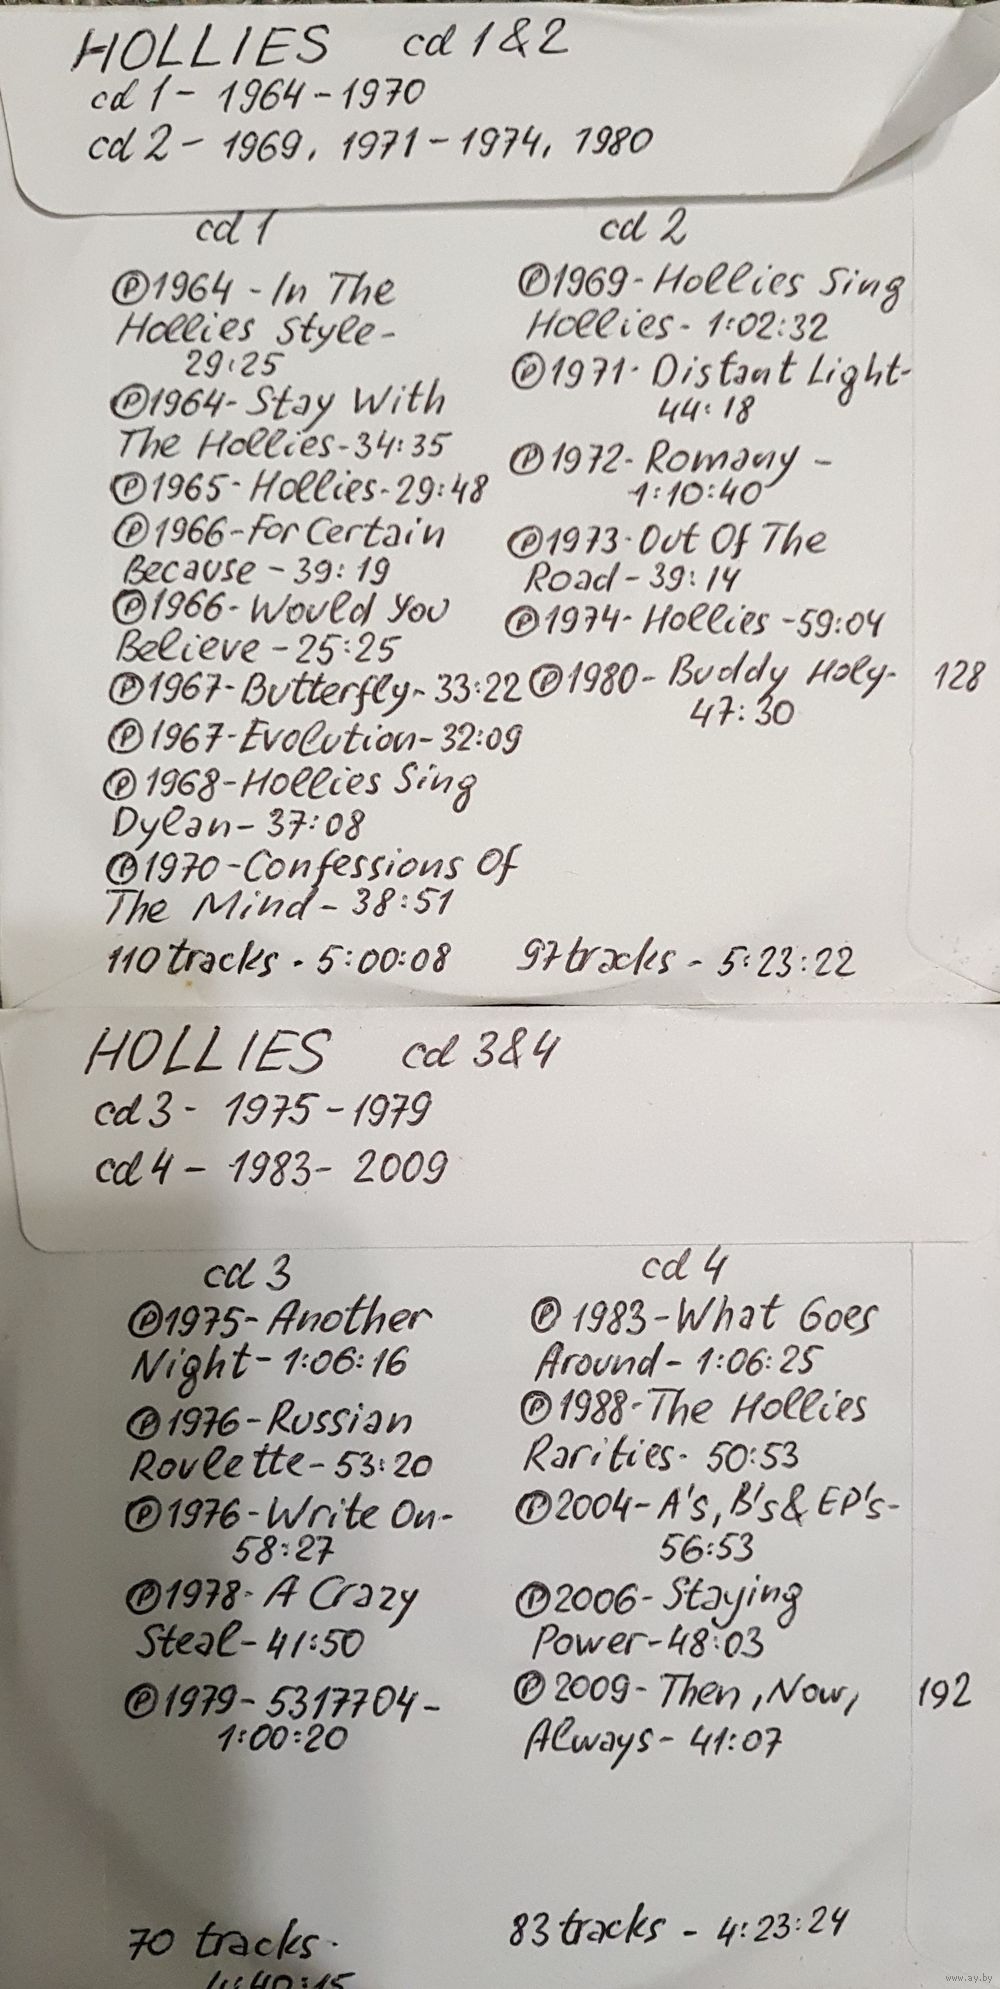 HOLLIES cd 1&2
cd 1 - 1964 - 1970
cd 2 - 1969, 1971 - 1974, 1980
cd 1
Ⓟ1964 - In The
Hollies Style -
29:25
Ⓟ1964 - Stay With
The Hollies - 34:35
Ⓟ1965 - Hollies - 29:48
Ⓟ1966 - For Certain
Because - 39:19
Ⓟ1966 - Would You
Believe - 25:25
Ⓟ1967 - Butterfly - 33:22
Ⓟ1967 - Evolution - 32:09
Ⓟ1968 - Hollies Sing
Dylan - 37:08
Ⓟ1970 - Confessions Of
The Mind - 38:51
110 tracks - 5:00:08
cd 2
Ⓟ1969 - Hollies Sing
Hollies - 1:02:32
Ⓟ1971 - Distant Light -
44:18
Ⓟ1972 - Romany -
1:10:40
Ⓟ1973 - Out Of The
Road - 39:14
Ⓟ1974 - Hollies - 59:04
Ⓟ1980 - Buddy Holy - 128
47:30
97 tracks - 5:23:22
HOLLIES cd 3&4
cd 3 - 1975 - 1979
cd 4 - 1983 - 2009
cd 3
Ⓟ1975 - Another
Night - 1:06:16
Ⓟ1976 - Russian
Roulette - 53:20
Ⓟ1976 - Write On -
58:27
Ⓟ1978 - A Crazy
Steal - 41:50
Ⓟ1979 - 5317704 -
1:00:20
70 tracks -
4:40:15
cd 4
Ⓟ 1983 - What Goes
Around - 1:06:25
Ⓟ1988 - The Hollies
Rarities - 50:53
Ⓟ2004 - A's, B's & EP's -
56:53
Ⓟ2006 - Staying
Power - 48:03
Ⓟ2009 - Then, Now, 192
Always - 41:07
83 tracks - 4:23:24
www.ay.by